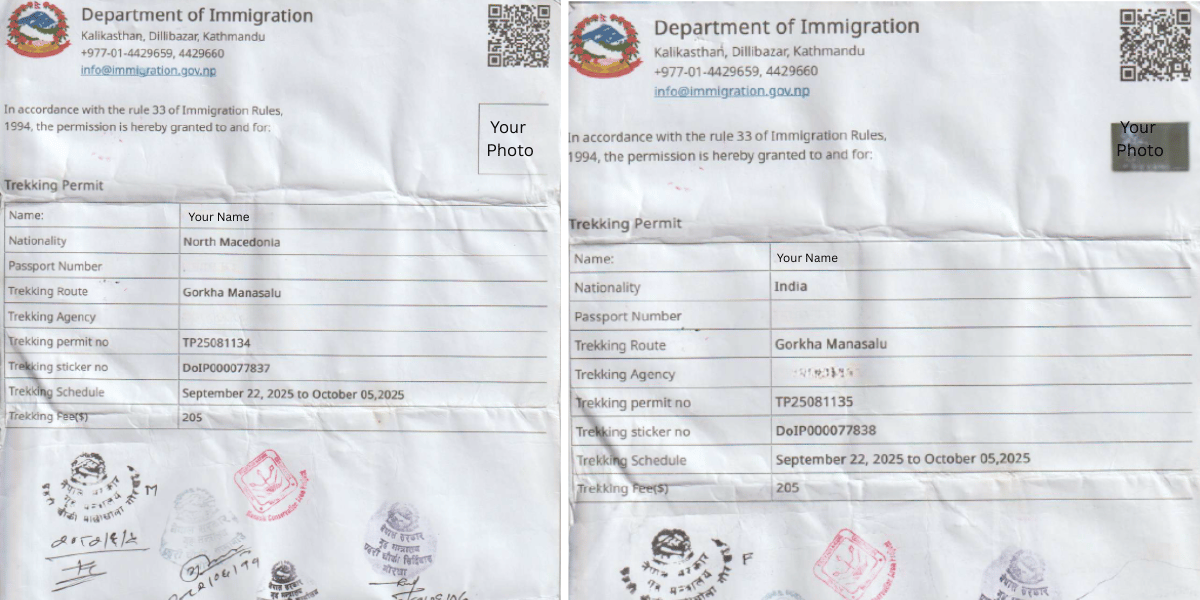 Department of Immigration
Kalikasthan, Dillibazar, Kathmandu
+977-01-4429659, 4429660
info@immigration.gov.np
In accordance with the rule 33 of Immigration Rules,
1994, the permission is hereby granted to and for:
Your
Photo
Trekking Permit
Name: Your Name
Nationality North Macedonia
Passport Number
Trekking Route Gorkha Manasalu
Trekking Agency
Trekking permit no TP25081134
Trekking sticker no DoIP000077837
Trekking Schedule September 22, 2025 to October 05,2025
Trekking Fee($) 205
नेपाल सरकार
गृह मन्त्रालय
M
नेपाल सरकार
गृह मन्त्रालय
नेपाल सरकार
Department of Immigration
Kalikasthan, Dillibazar, Kathmandu
+977-01-4429659, 4429660
info@immigration.gov.np
In accordance with the rule 33 of Immigration Rules,
1994, the permission is hereby granted to and for:
Your
Photo
Trekking Permit
Name: Your Name
Nationality India
Passport Number
Trekking Route Gorkha Manasalu
Trekking Agency
Trekking permit no TP25081135
Trekking sticker no DoIP000077838
Trekking Schedule September 22, 2025 to October 05,2025
Trekking Fee($) 205
नेपाल सरकार
गृह मन्त्रालय
F